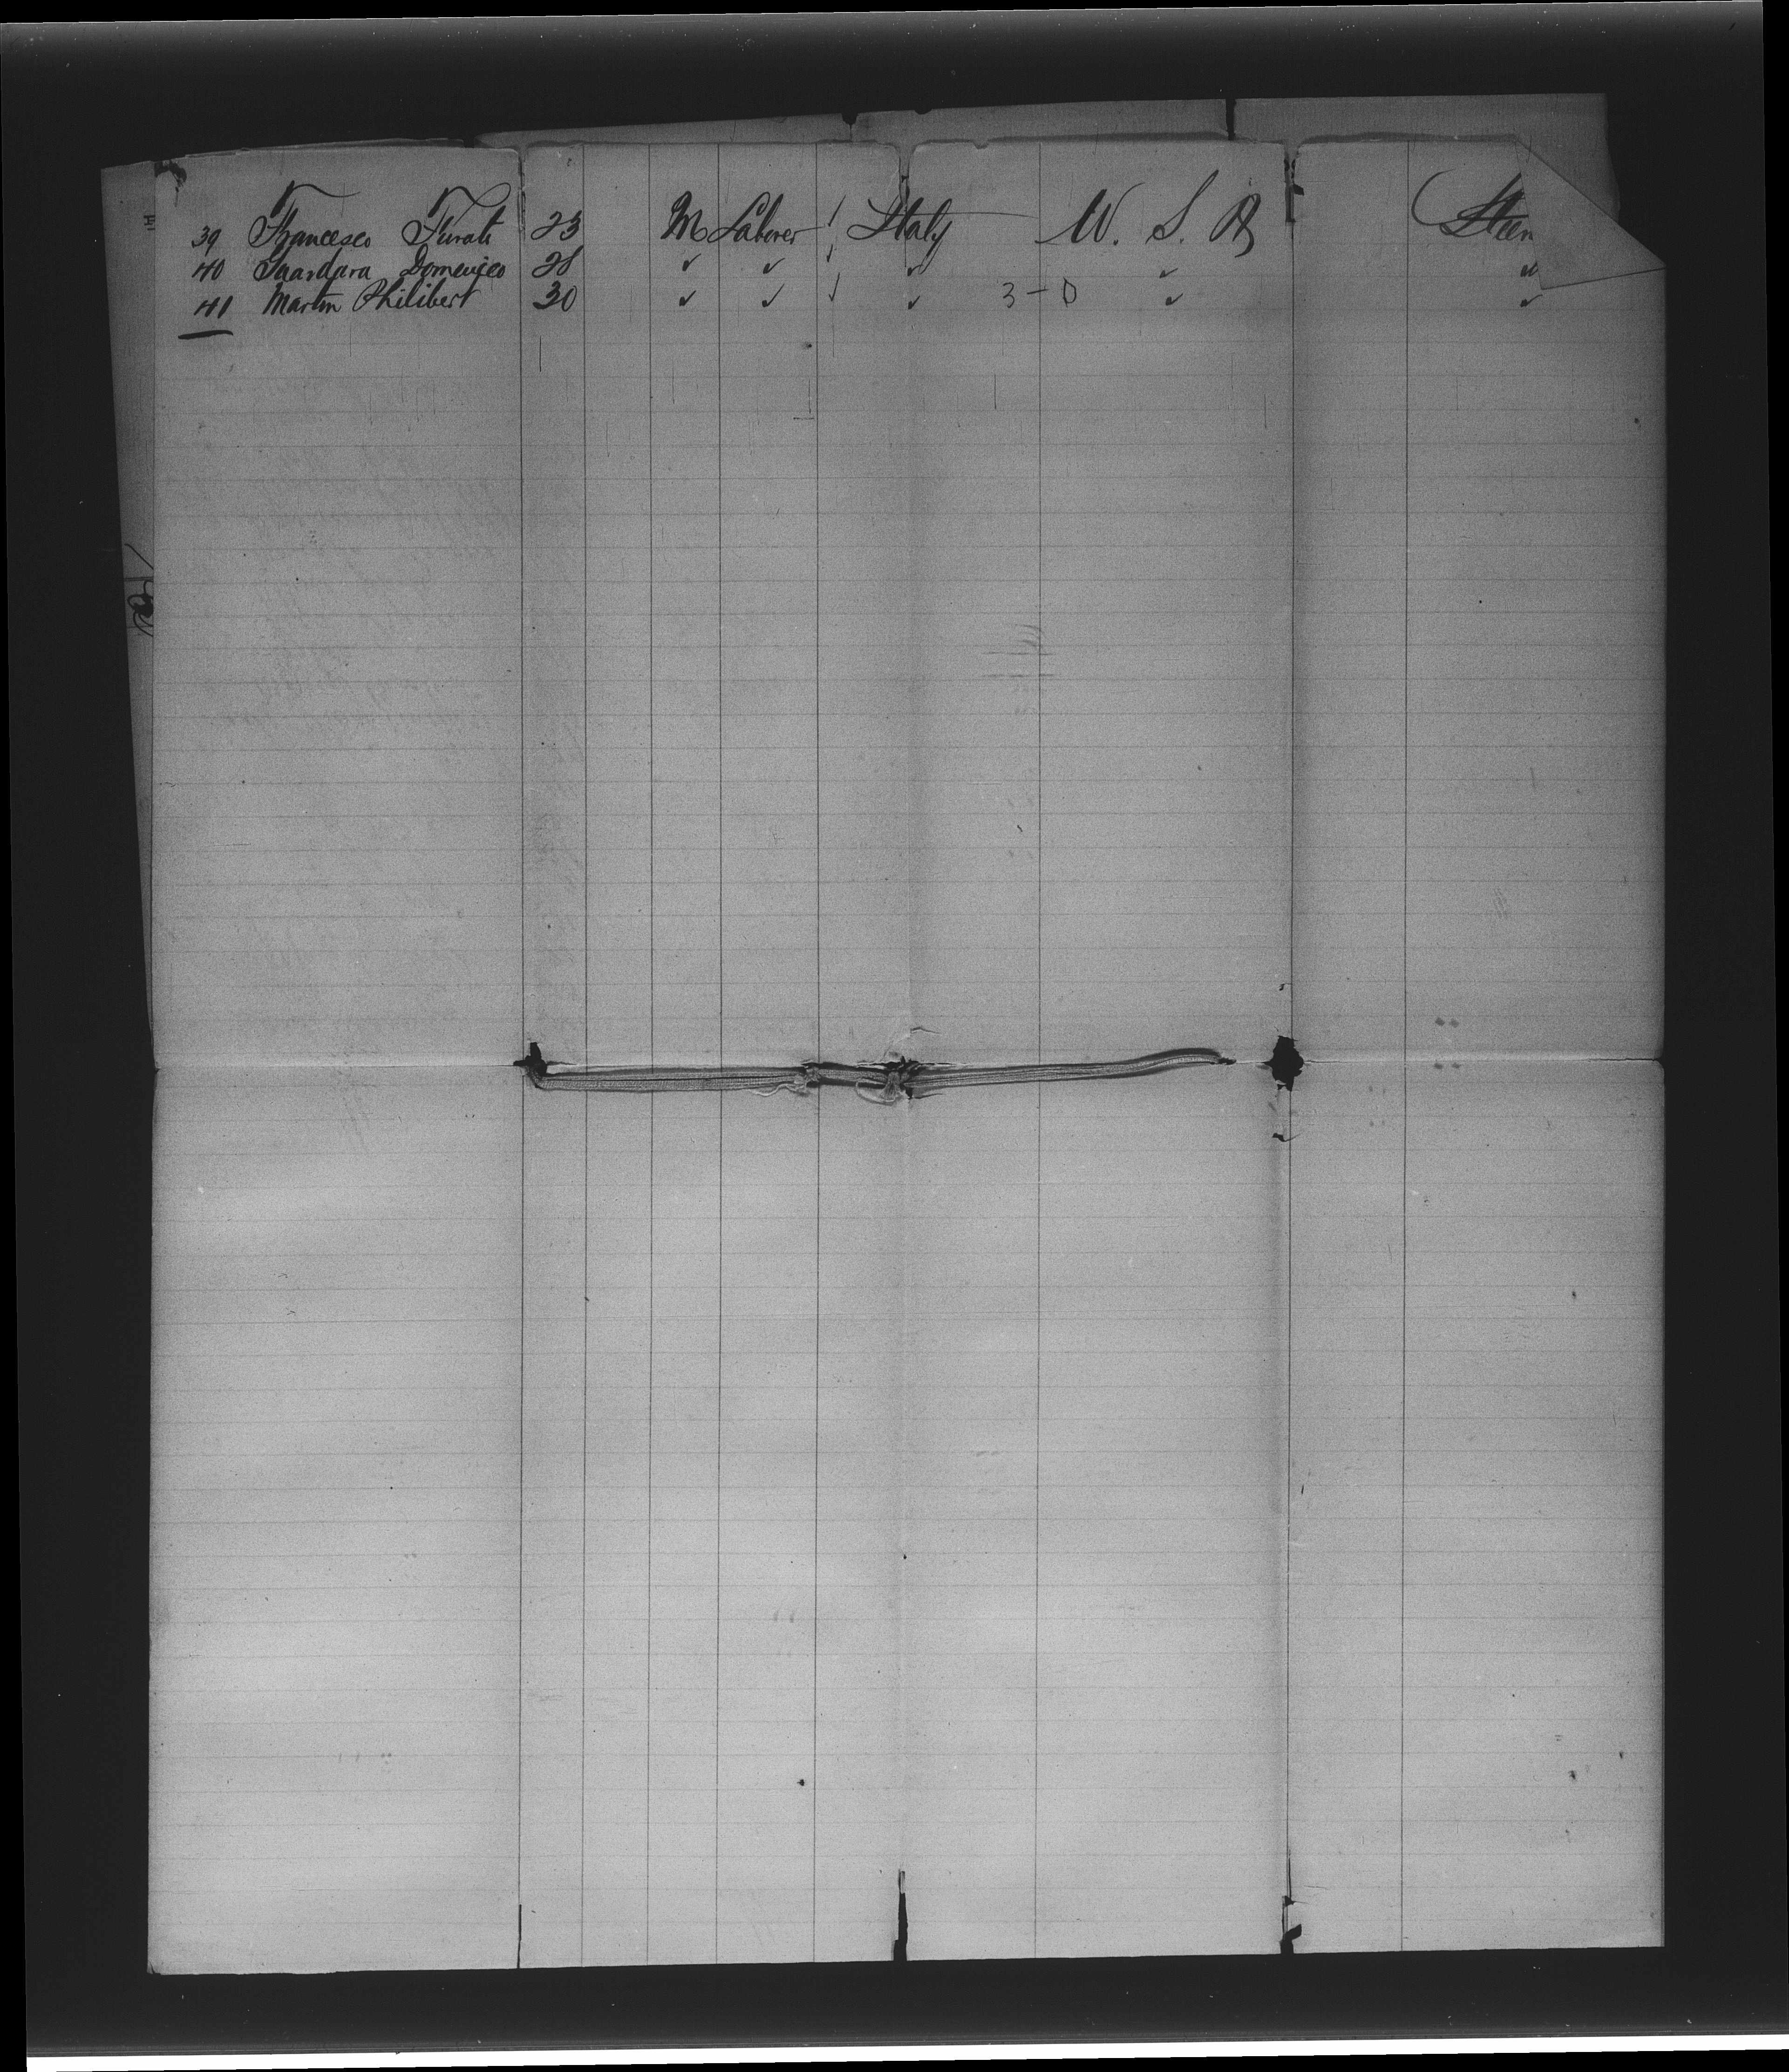 39 Francesco Turati 23 M Laborer / Italy U. S. A Steer
40 Domenico 28 ✓ ✓ ✓ ✓ ✓ ✓
41 Martin Philibert 30 ✓ ✓ ✓ ✓ 3-0 ✓ ✓